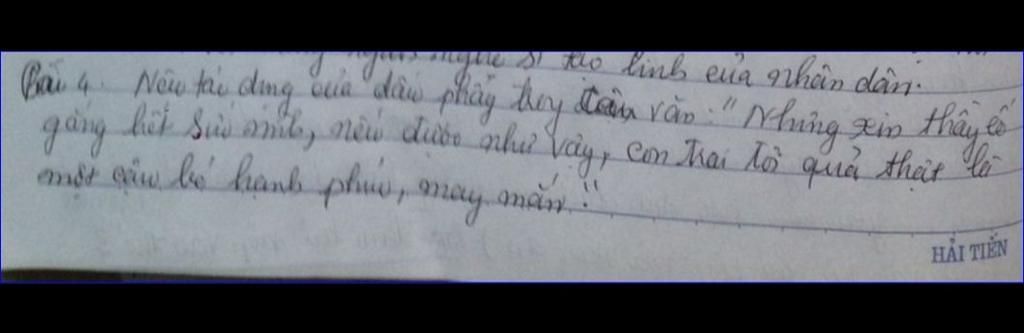 nghệ sĩ tào linh của nhân dân.
Bài 4. Nêu tác dụng của dấu phẩy trong văn: "Nhưng xin thầy cố
gắng hết sức mình, nếu được như vậy, con trai tôi quả thật là
một cậu bé hạnh phúc, may mắn!"
HẢI TIẾN